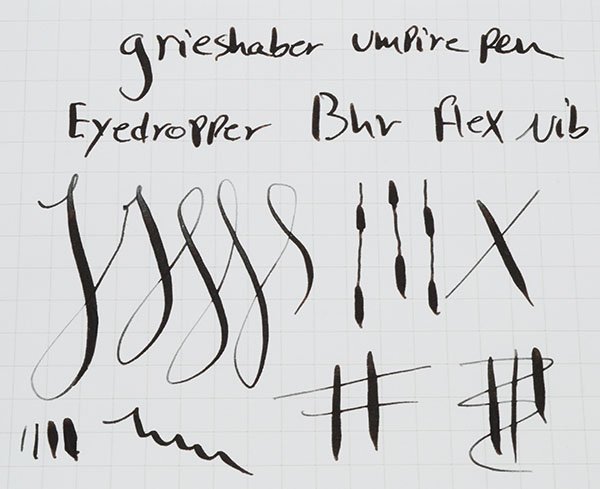 grieshaber umpire pen
Eyedropper Bhr flex nib